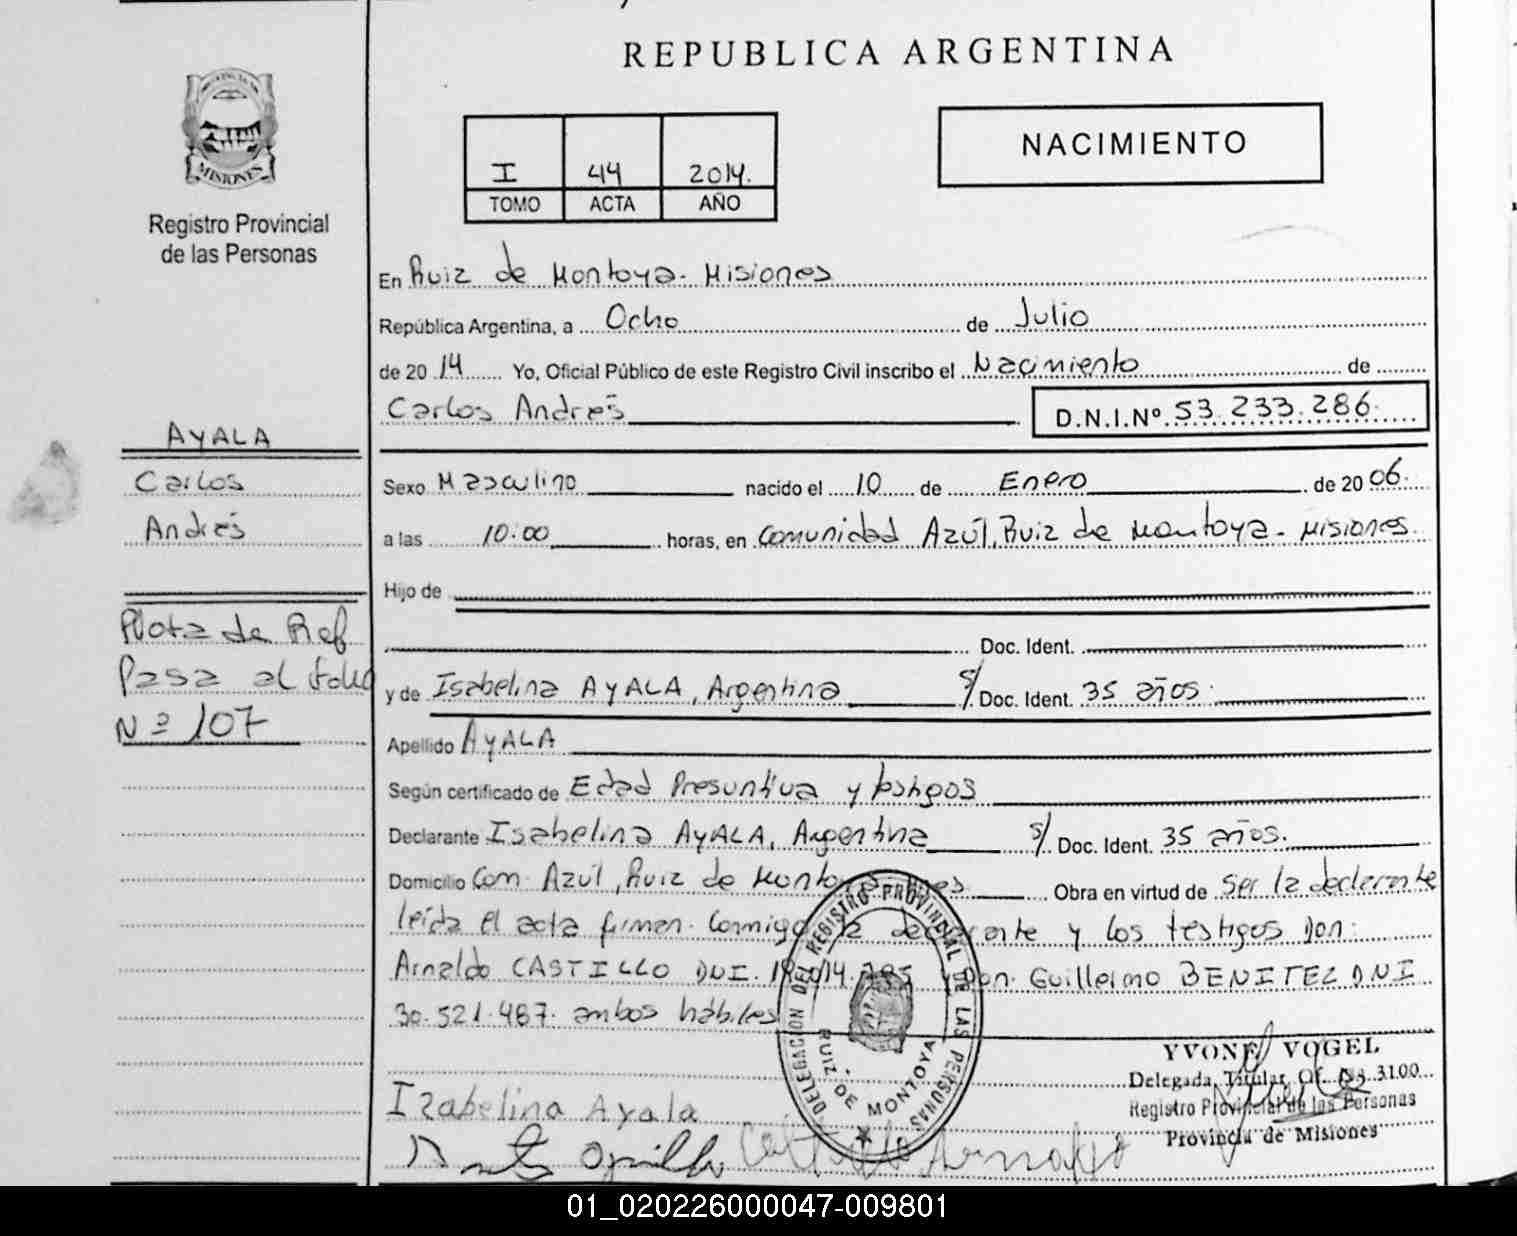 REPUBLICA ARGENTINA
MISIONES
Registro Provincial
de las Personas
I 44 2014.
TOMO ACTA AÑO
NACIMIENTO
En Ruiz de Montoya - Misiones
República Argentina, a Ocho de Julio
de 20 14 Yo, Oficial Público de este Registro Civil inscribo el Nacimiento de
Carlos Andrés
D.N.I.Nº 53.233.286.
AYALA
Carlos
Andrés
Nota de Ref
Pasa al folio
Nº 107
Sexo Masculino nacido el 10 de Enero de 20 06.
a las 10:00 horas, en Comunidad Azúl, Ruiz de Montoya - Misiones.
Hijo de
Doc. Ident.
y de Isabelina AYALA, Argentina s/ Doc. Ident. 35 años.
Apellido AYALA
Según certificado de Edad Presuntiva y testigos
Declarante Isabelina AYALA, Argentina s/ Doc. Ident. 35 años.
Domicilio Com. Azúl, Ruiz de Montoya Obra en virtud de Ser la declarante
leída el acta firman conmigo la declarante y los testigos Don:
Arnaldo CASTILLO DNI. Don. Guillermo BENITEZ DNI
30.521.467. ambos hábiles
DELEGACION DEL REGISTRO PROVINCIAL DE LAS PERSONAS
RUIZ DE MONTOYA
YVONE VOGEL
Delegada Titular Of. 3100
Registro Provincial de las Personas
Provincia de Misiones
Izabelina Ayala
Castillo Arnaldo
01_020226000047-009801